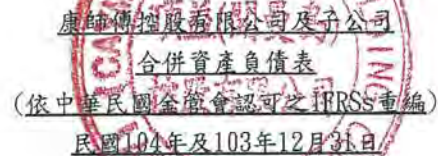 康師傅控股有限公司及子公司
合併資產負債表
(依中華民國金管會認可之IFRSs重編)
民國104年及103年12月31日